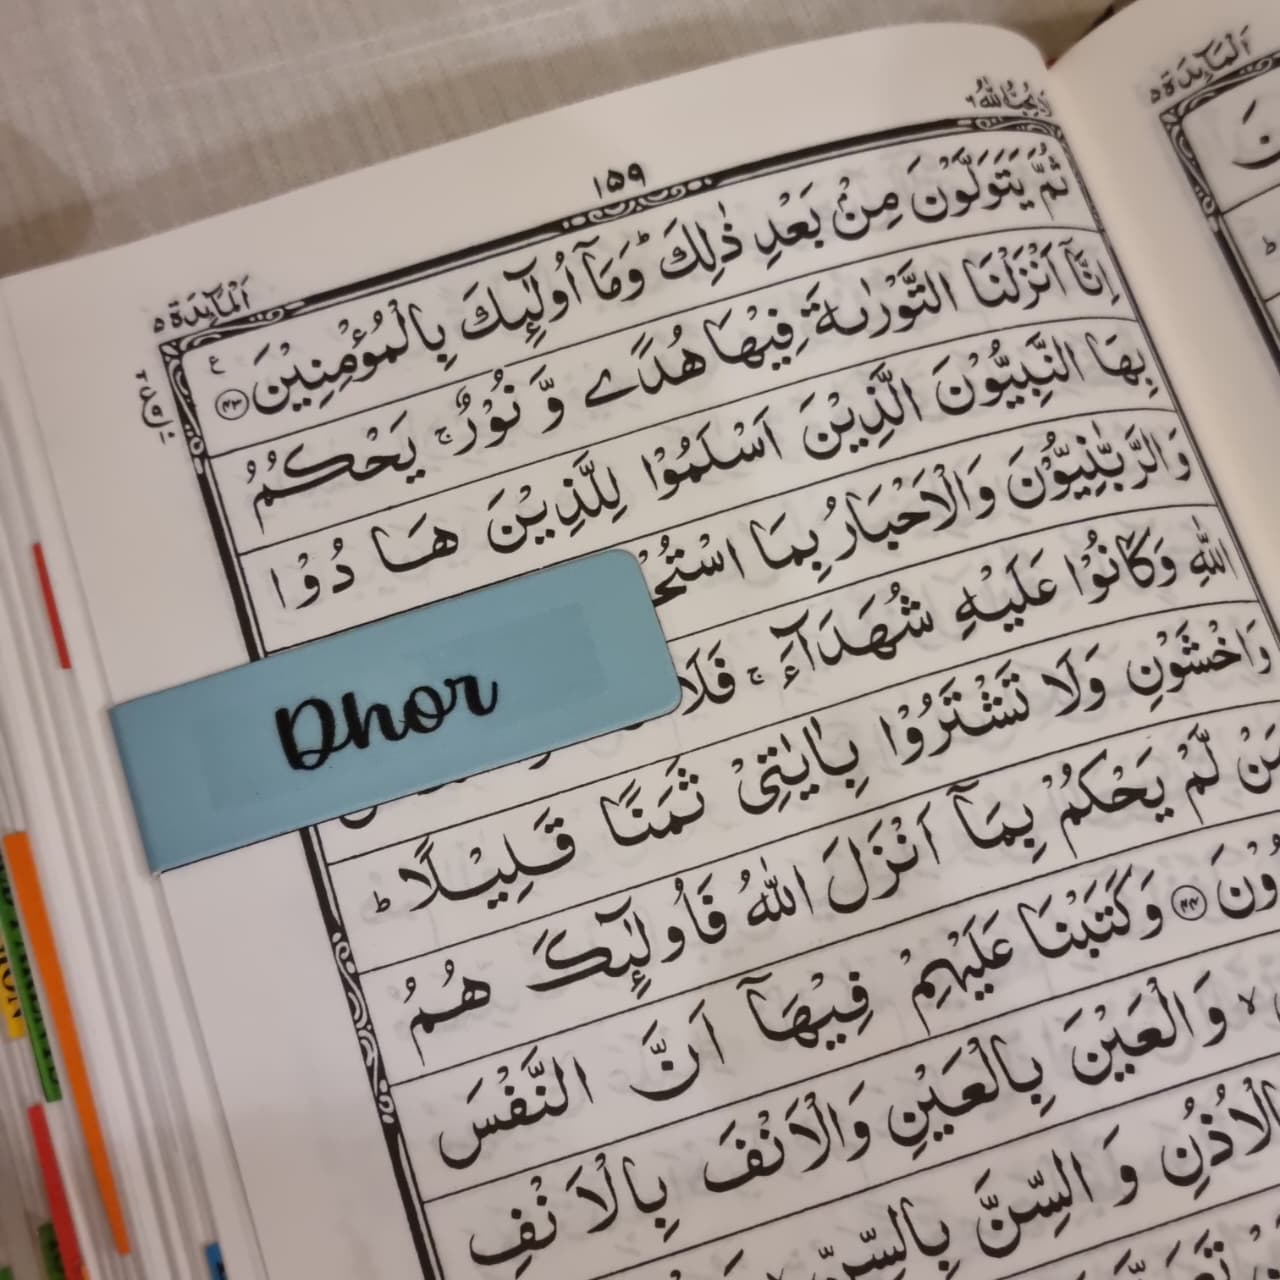 لَا يُحِبُّ اللّٰهُ ٦
١٥٩
اَلْمَآئِدَة ٥
اَلْمَآئِدَة ٥
ثُمَّ يَتَوَلَّوْنَ مِنْۢ بَعْدِ ذٰلِكَ ؕ وَمَاۤ اُولٰٓئِكَ بِالْمُؤْمِنِيْنَ ﴿۴۳﴾ ع
اِنَّاۤ اَنْزَلْنَا التَّوْرٰىةَ فِيْهَا هُدًى وَّ نُوْرٌ ۚ يَحْكُمُ
بِهَا النَّبِيُّوْنَ الَّذِيْنَ اَسْلَمُوْا لِلَّذِيْنَ هَا دُوْا
وَالرَّبّٰنِيُّوْنَ وَالْاَحْبَارُ بِمَا
اللّٰهِ وَكَانُوْا عَلَيْهِ شُهَدَآءَ ۚ فَلَا
وَاخْشَوْنِ وَلَا تَشْتَرُوْا بِاٰيٰتِيْ ثَمَنًا قَلِيْلًا ؕ
لَّمْ يَحْكُمْ بِمَاۤ اَنْزَلَ اللّٰهُ فَاُولٰٓئِكَ هُمُ
﴿۴۴﴾ وَكَتَبْنَا عَلَيْهِمْ فِيْهَاۤ اَنَّ النَّفْسَ
وَالْعَيْنَ بِالْعَيْنِ وَالْاَنْفَ بِالْاَنْفِ
وَ السِّنَّ
Dhor